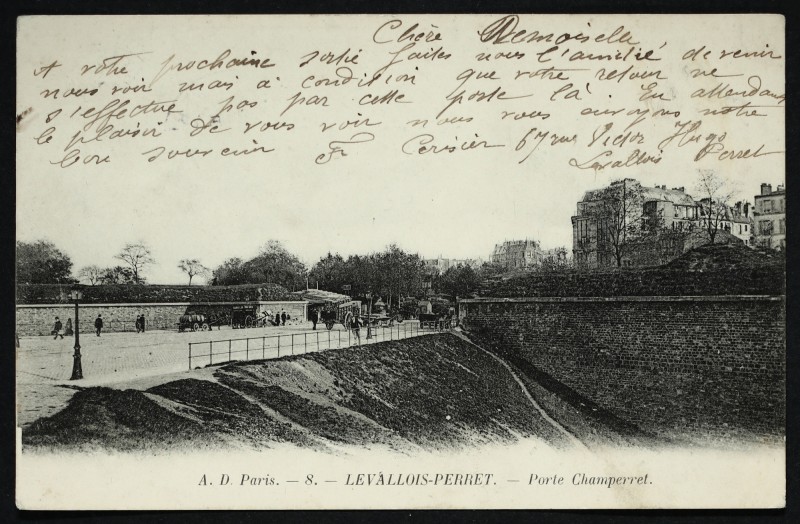 Chère Demoiselle
A votre prochaine sortie faites nous l'amitié de venir
nous voir mais à condition que votre retour ne
s'effectue pas par cette porte là. En attendant
le plaisir de vous voir nous vous envoyons notre
bon souvenir Fr Cerisier 67 rue Victor Hugo
Levallois Perret
A. D. Paris. — 8. — LEVALLOIS-PERRET. — Porte Champerret.